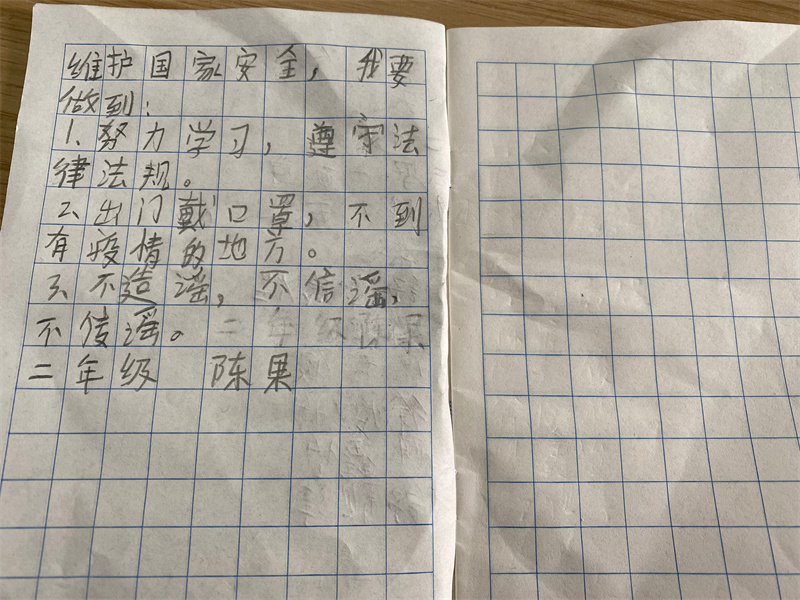 维护国家安全，我要
做到：
1、努力学习，遵守法
律法规。
2、出门戴口罩，不到
有疫情的地方。
3、不造谣，不信谣，
不传谣。二年级陈果
二年级 陈果